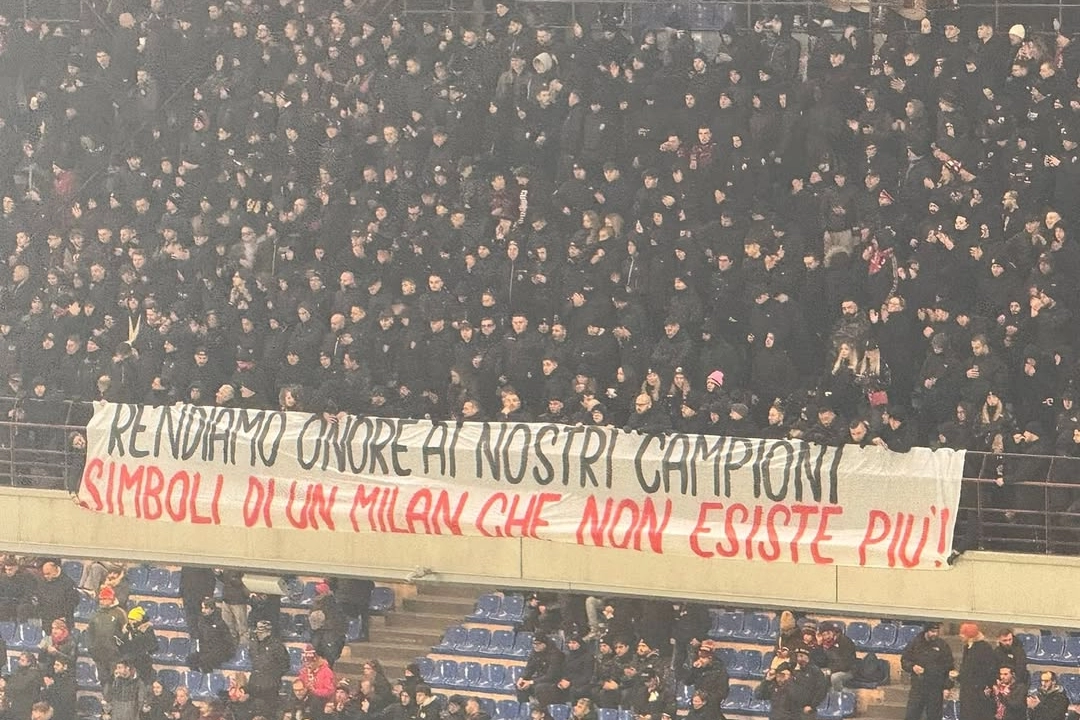 RENDIAMO ONORE AI NOSTRI CAMPIONI
SIMBOLI DI UN MILAN CHE NON ESISTE PIU'!